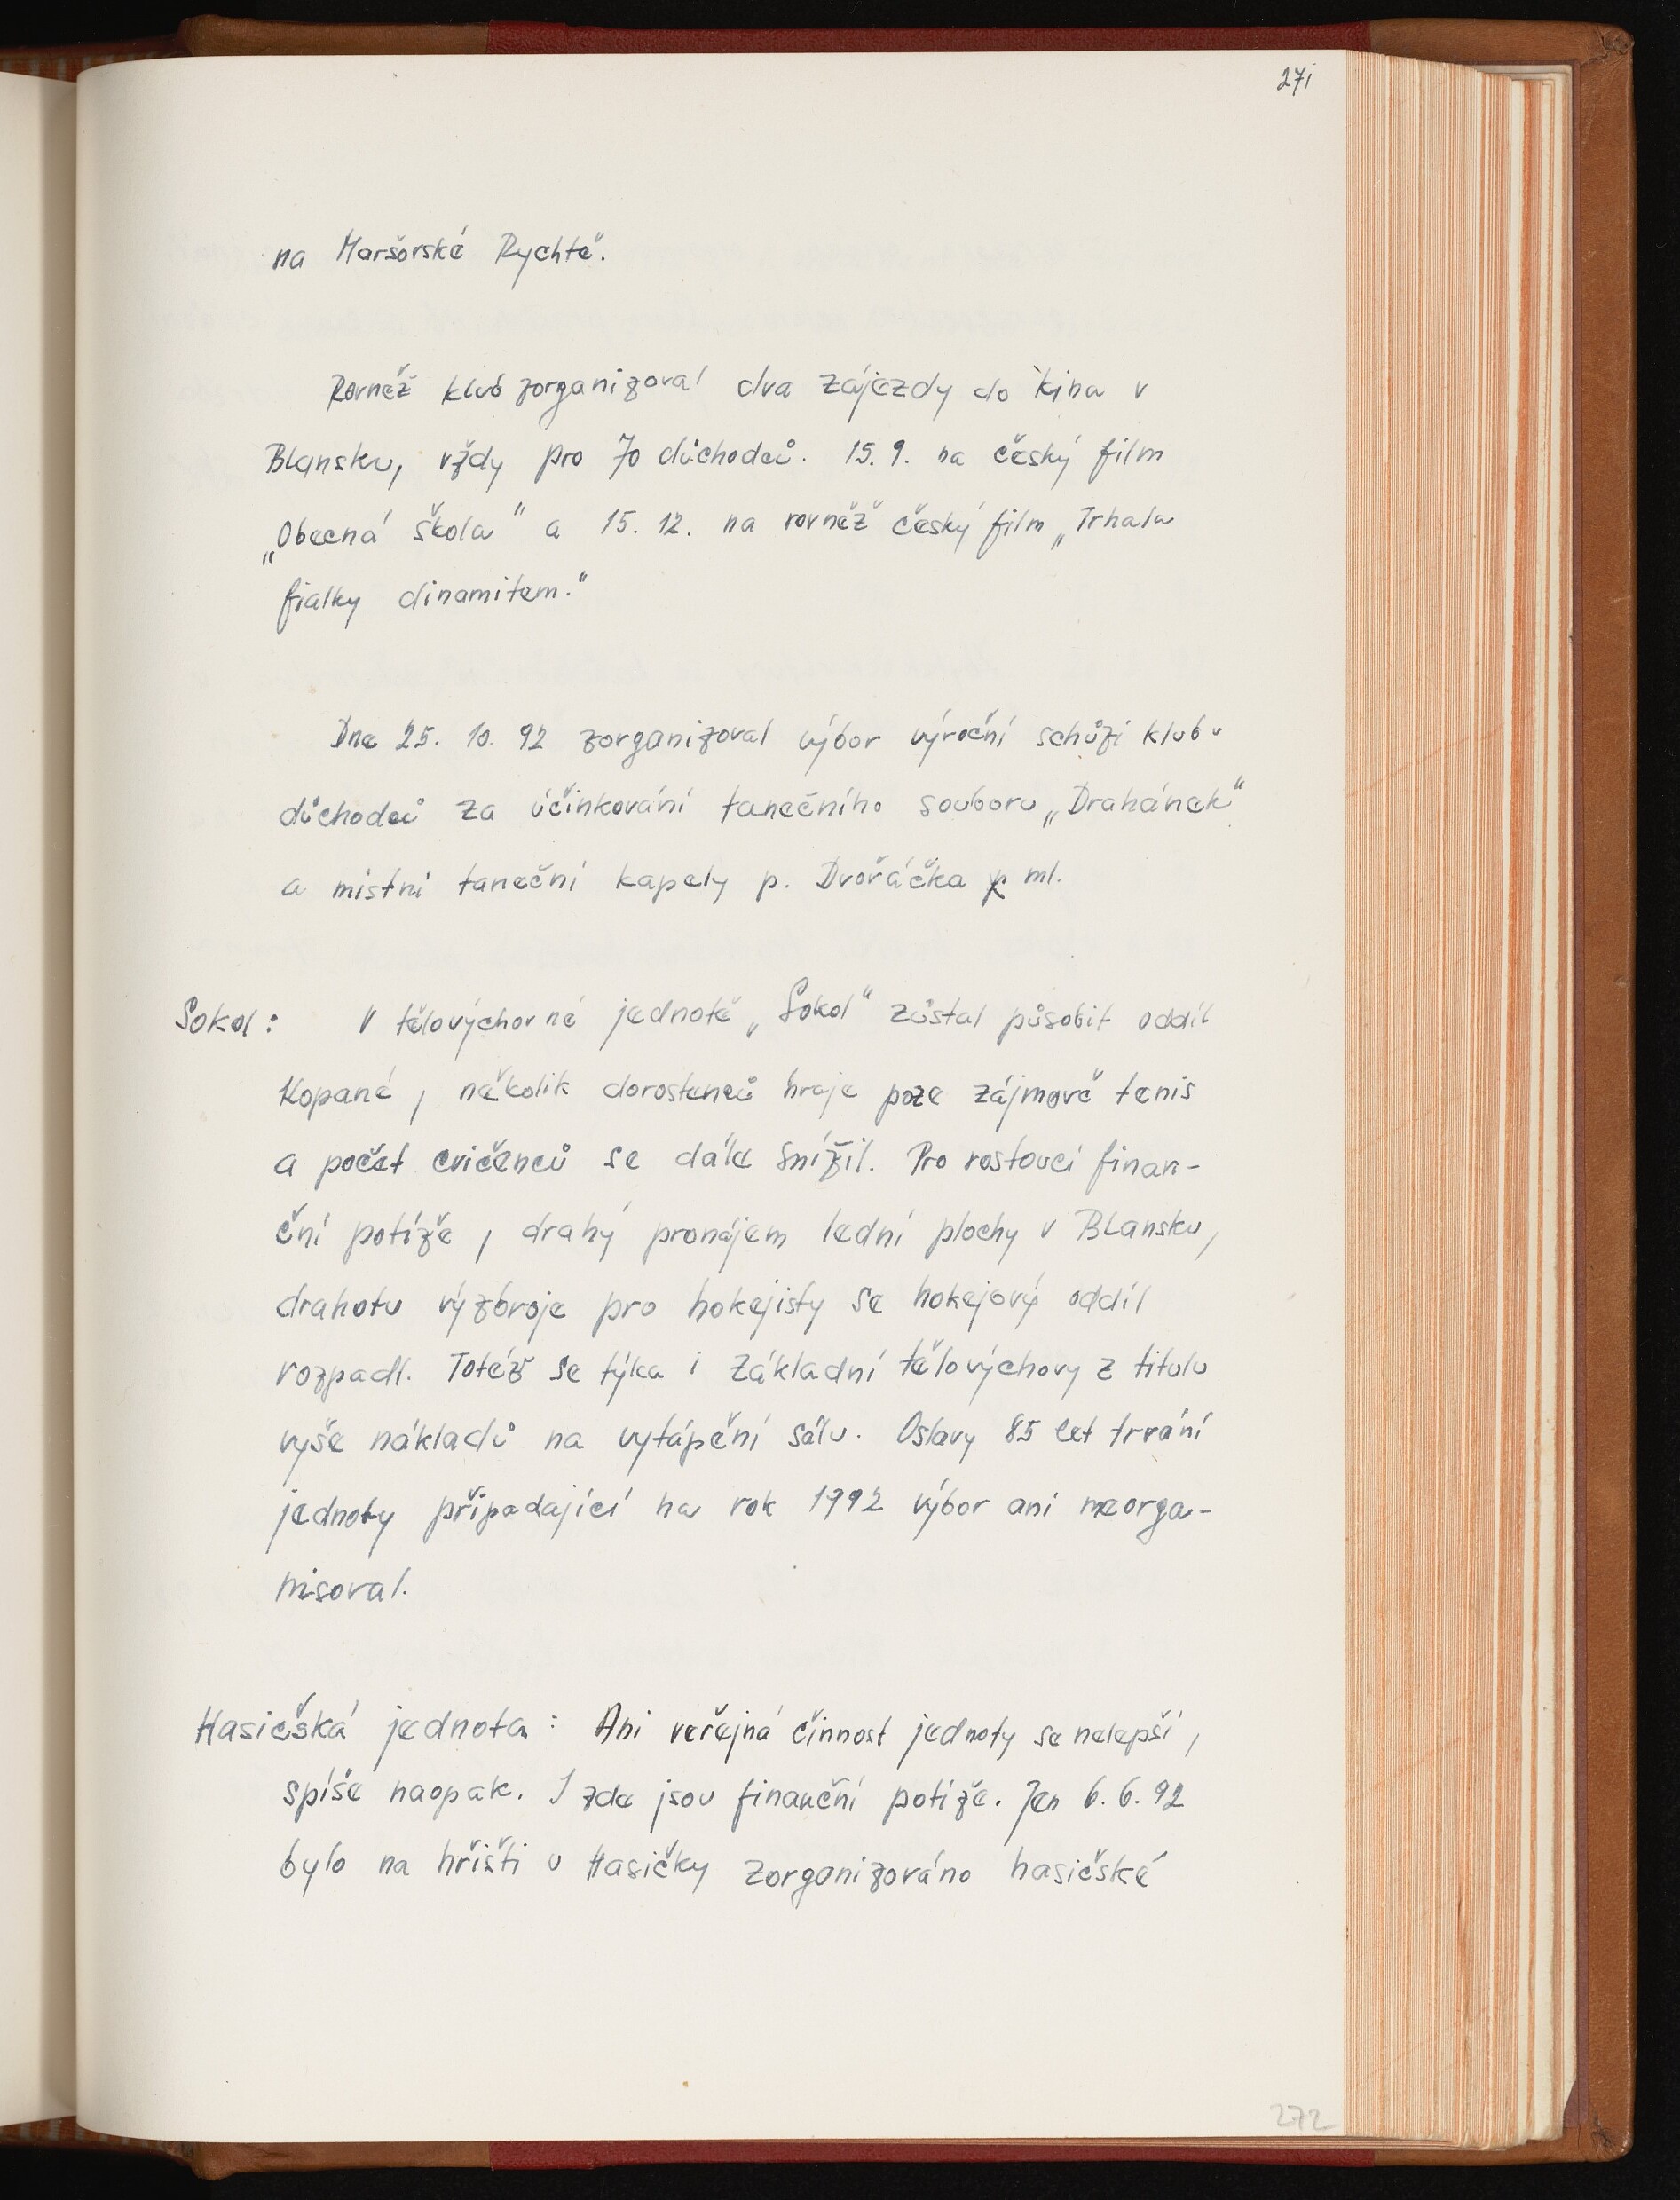 271
na Maršovské Rychtě.
Rovněž klub zorganizoval dva zájezdy do kina v
Blansku, vždy pro 70 důchodců. 15. 9. na český film
„Obecná škola" a 15. 12. na rovněž český film „Trhala
fialky dinamitem."
Dne 25. 10. 92 zorganizoval výbor výroční schůzi klubu
důchodců za účinkování tanečního souboru „Drahánek"
a místní taneční kapely p. Dvořáčka ml.
Sokol: V tělovýchovné jednotě „Sokol" zůstal působit oddíl
Kopané, několik dorostenců hraje poze zájmově tenis
a počet cvičenců se dále snížil. Pro rostoucí finan-
ční potíže, drahý pronájem lední plochy v Blansku,
drahotu výzbroje pro hokejisty se hokejový oddíl
rozpadl. Totéž se týka i Základní tělovýchovy z titulu
výše nákladů na vytápění sálu. Oslavy 85 let trvání
jednoty připadající na rok 1992 výbor ani neorga-
nisoval.
Hasičská jednota: Ani veřejná činnost jednoty se nelepší,
spíše naopak. I zde jsou finanční potíže. Jen 6. 6. 92
bylo na hřišti u Hasičky zorganizováno hasičské
272